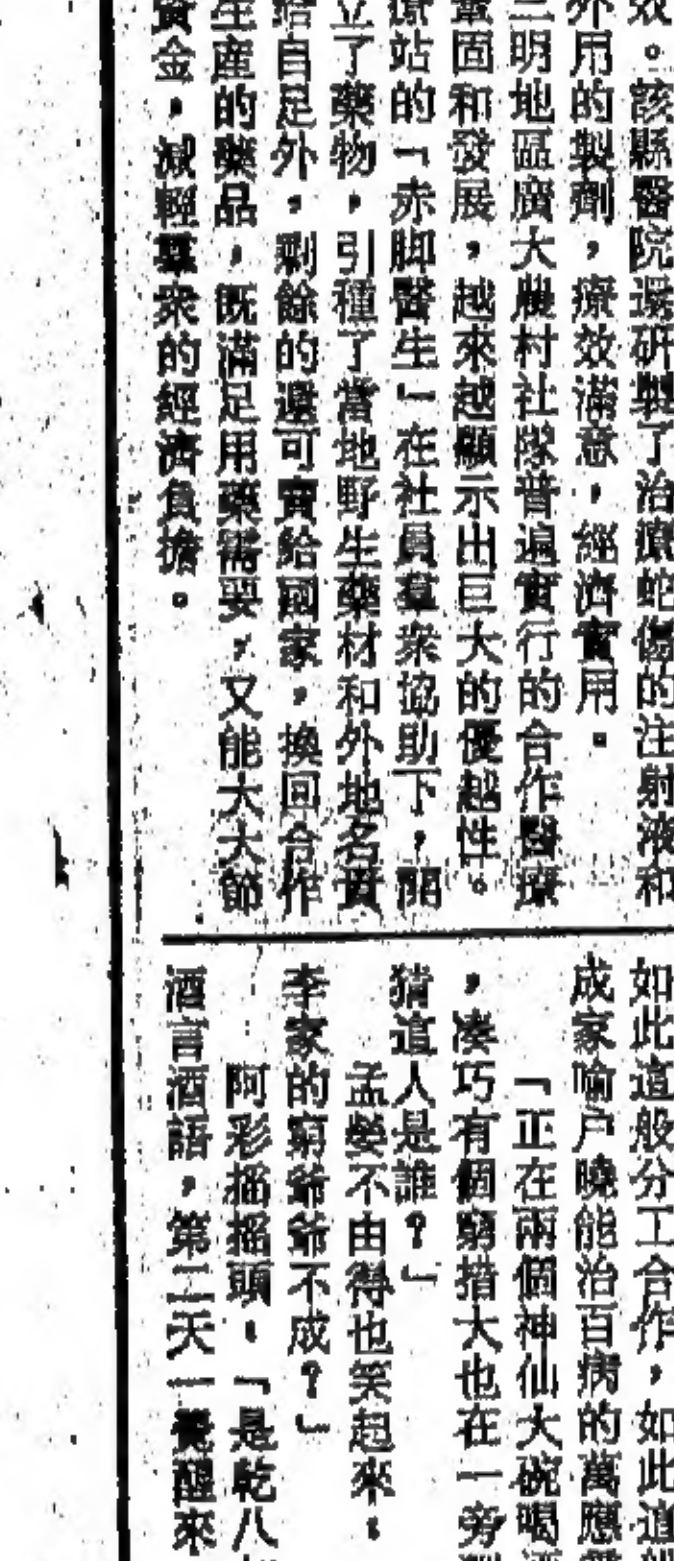 效。該縣醫院還研製了治療蛇傷的注射液和
外用的製劑，療效滿意，經濟實用。
三明地區廣大農村社隊普遍實行的合作醫療
鞏固和發展，越來越顯示出巨大的優越性。
療站的「赤脚醫生」在社員羣衆協助下，開
立了藥物，引種了當地野生藥材和外地名貴
給自足外，剩餘的還可賣給國家，換回合作
生産的藥品，既滿足用藥需要，又能大大節
資金，減輕羣衆的經濟負擔。
如此這般分工合作，如此這
成家喻户曉能治百病的萬應
「正在兩個神仙大碗喝
，凑巧有個窮措大也在一旁
猜這人是誰？」
孟嫈不由得也笑起來：
李家的窮爺爺不成？」
阿彩摇摇頭，「是乾八
酒言酒語，第二天一覺醒來